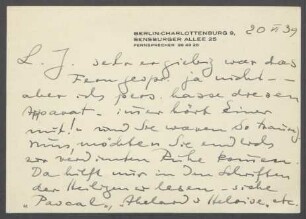 BERLIN-CHARLOTTENBURG 9,
SENSBURGER ALLEE 25
FERNSPRECHER 99 45 20
20 VI 39
L. J. sehr ergiebig war das
Ferngespr. ja nicht —
aber ich pers. hasse diesen
Apparat — immer hört Einer
mit! — und Sie waren so traurig
muss, möchten Sie endlich
zur verdienten Ruhe kommen.
Da hilft nur in den Schriften
der Heiligen zu lesen — siehe
"Pascal", Abelard u Heloise, etc.